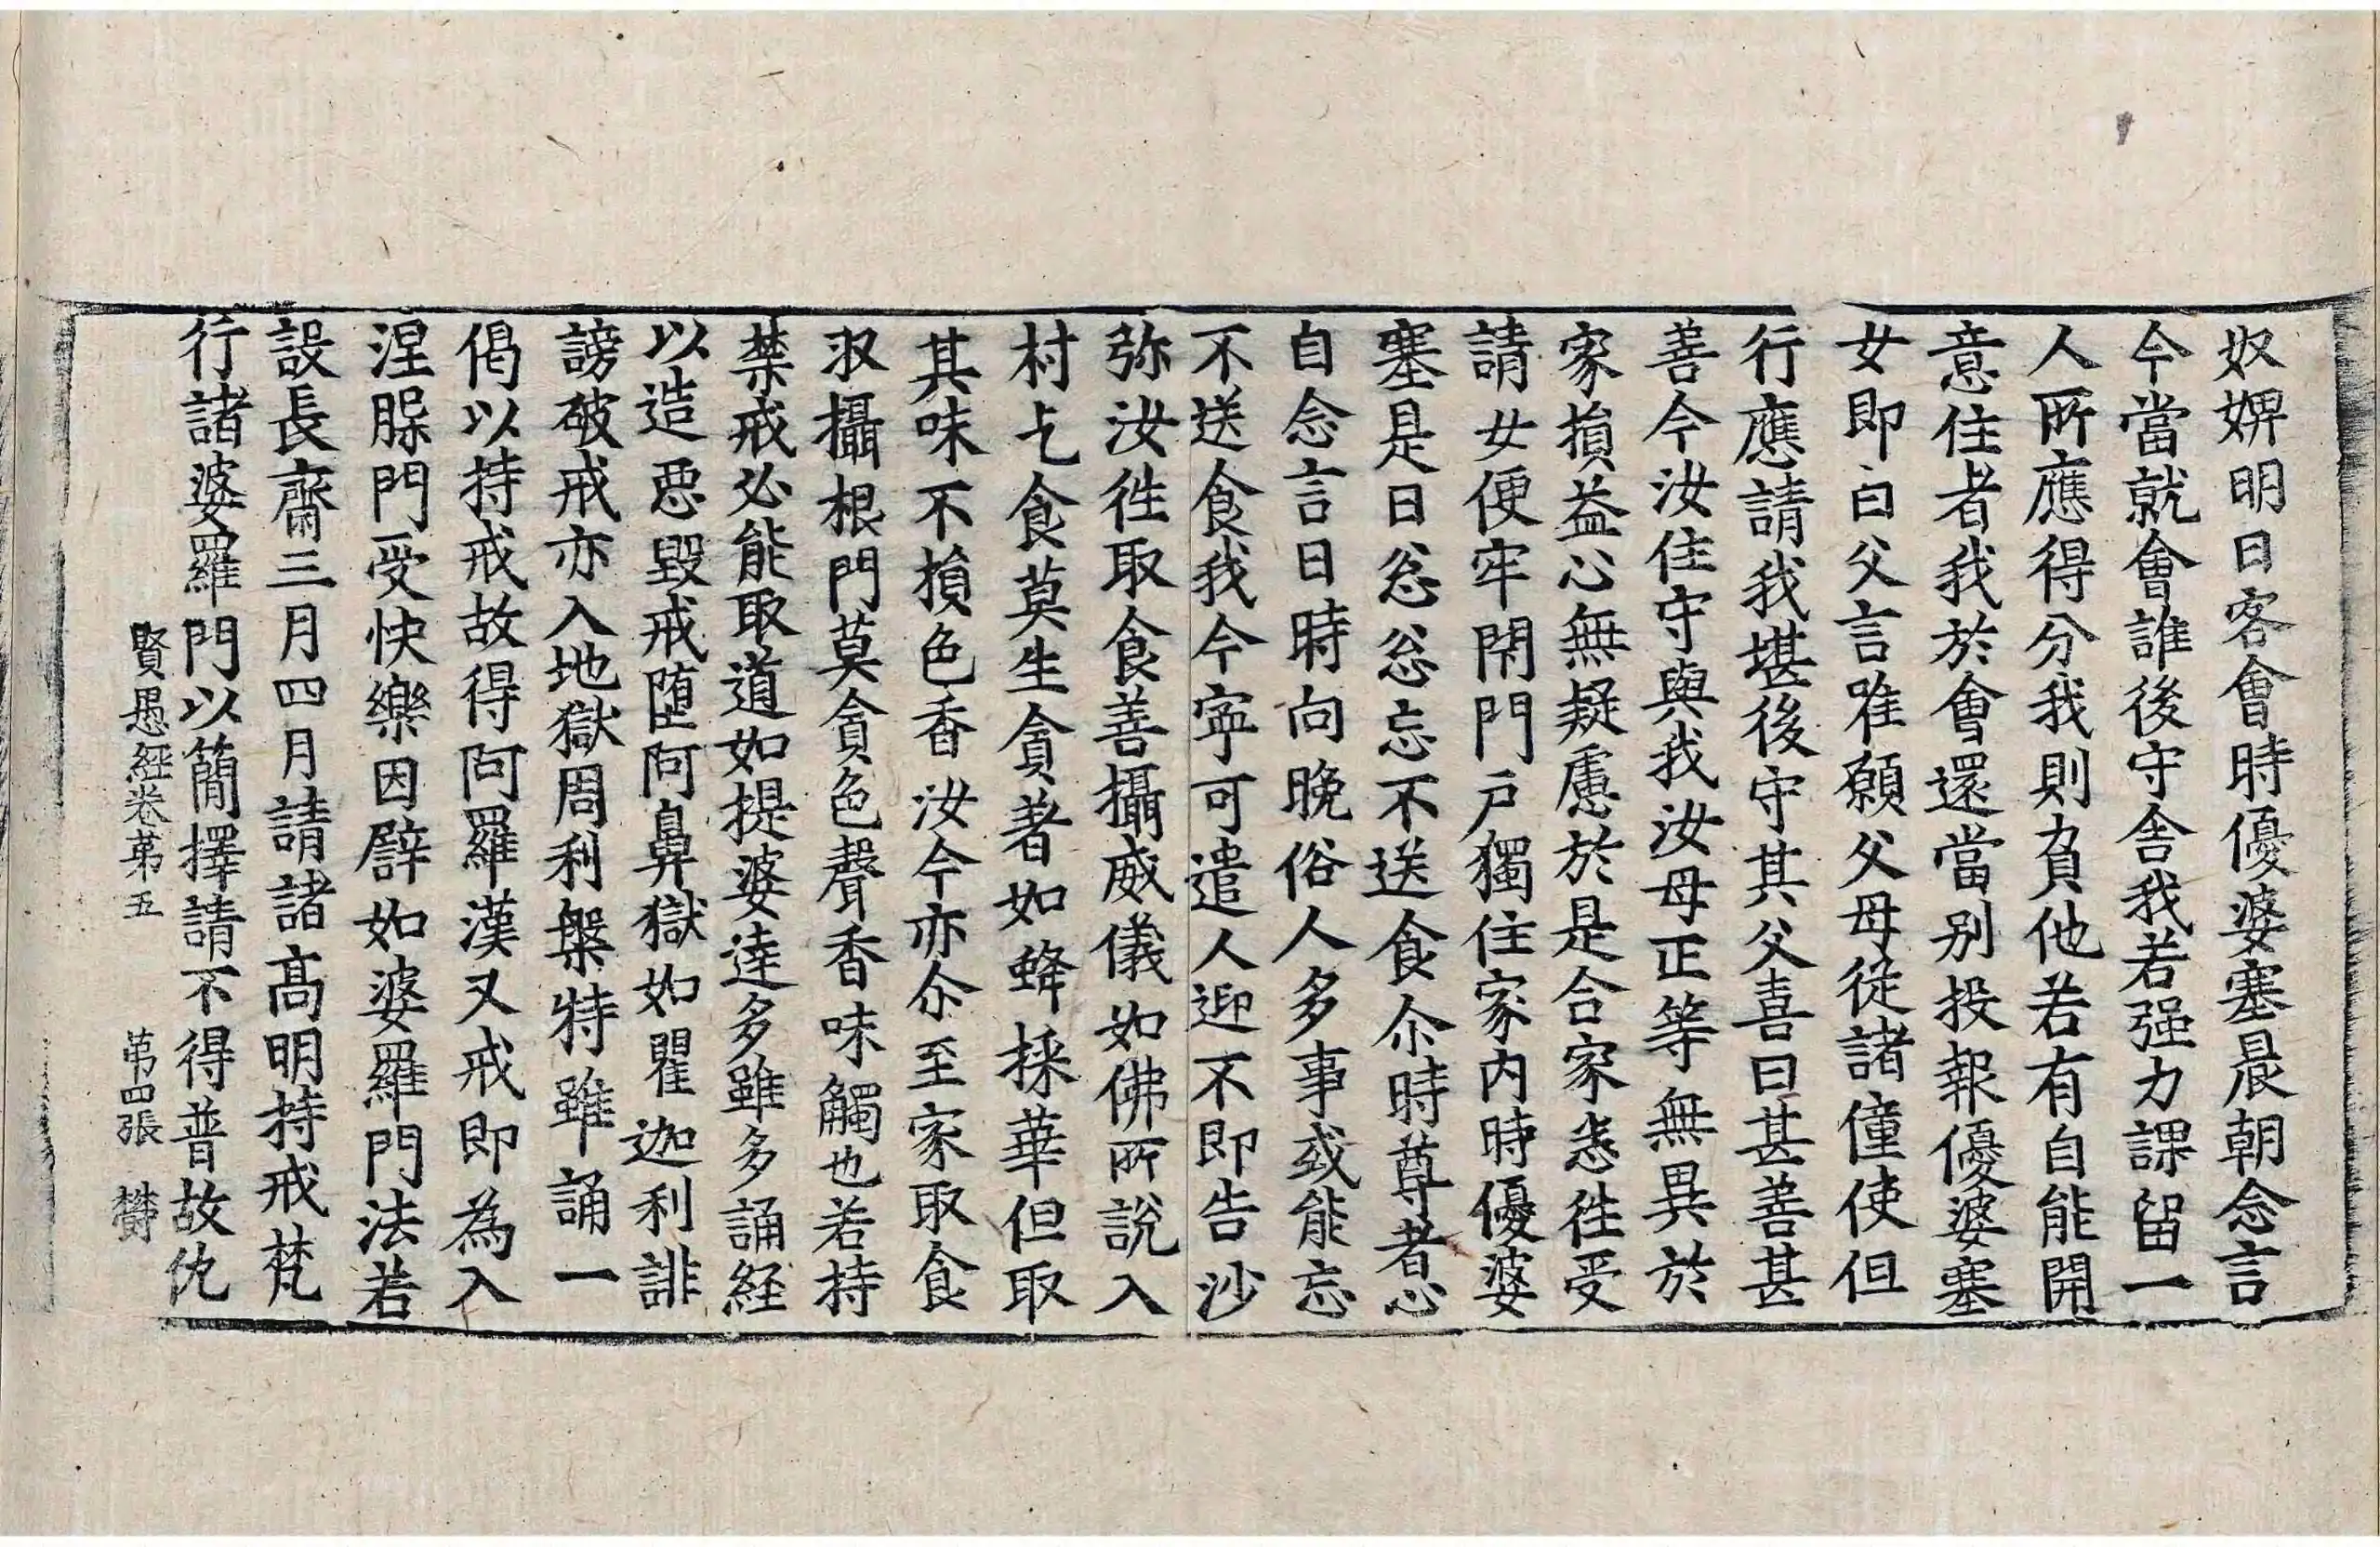 奴婢明日客會時優婆塞晨朝念言
今當就會誰後守舍我若强力課留一
人所應得分我則負他若有自能開
意住者我於會還當別投報優婆塞
女即白父言唯願父母從諸僮使但
行應請我堪後守其父喜曰甚善甚
善今汝住守與我汝母正等無異於
家損益心無疑慮於是合家悉往受
請女便牢閇門戶獨住家內時優婆
塞是日忩忩忘不送食尒時尊者心
自念言日時向晚俗人多事或能忘
不送食我今寧可遣人迎不即告沙
弥汝往取食善攝威儀如佛所說入
村乞食莫生貪著如蜂採華但取
其味不損色香汝今亦尒至家取食
収攝根門莫貪色聲香味觸也若持
禁戒必能取道如提婆達多雖多誦経
以造惡毀戒墮阿鼻獄如瞿迦利誹
謗破戒亦入地獄周利槃特雖誦一
偈以持戒故得阿羅漢又戒即為入
涅槃門受快樂因譬如婆羅門法若
設長齋三月四月請諸高明持戒梵
行諸婆羅門以簡擇請不得普故仇
賢愚経卷苐五 苐四張